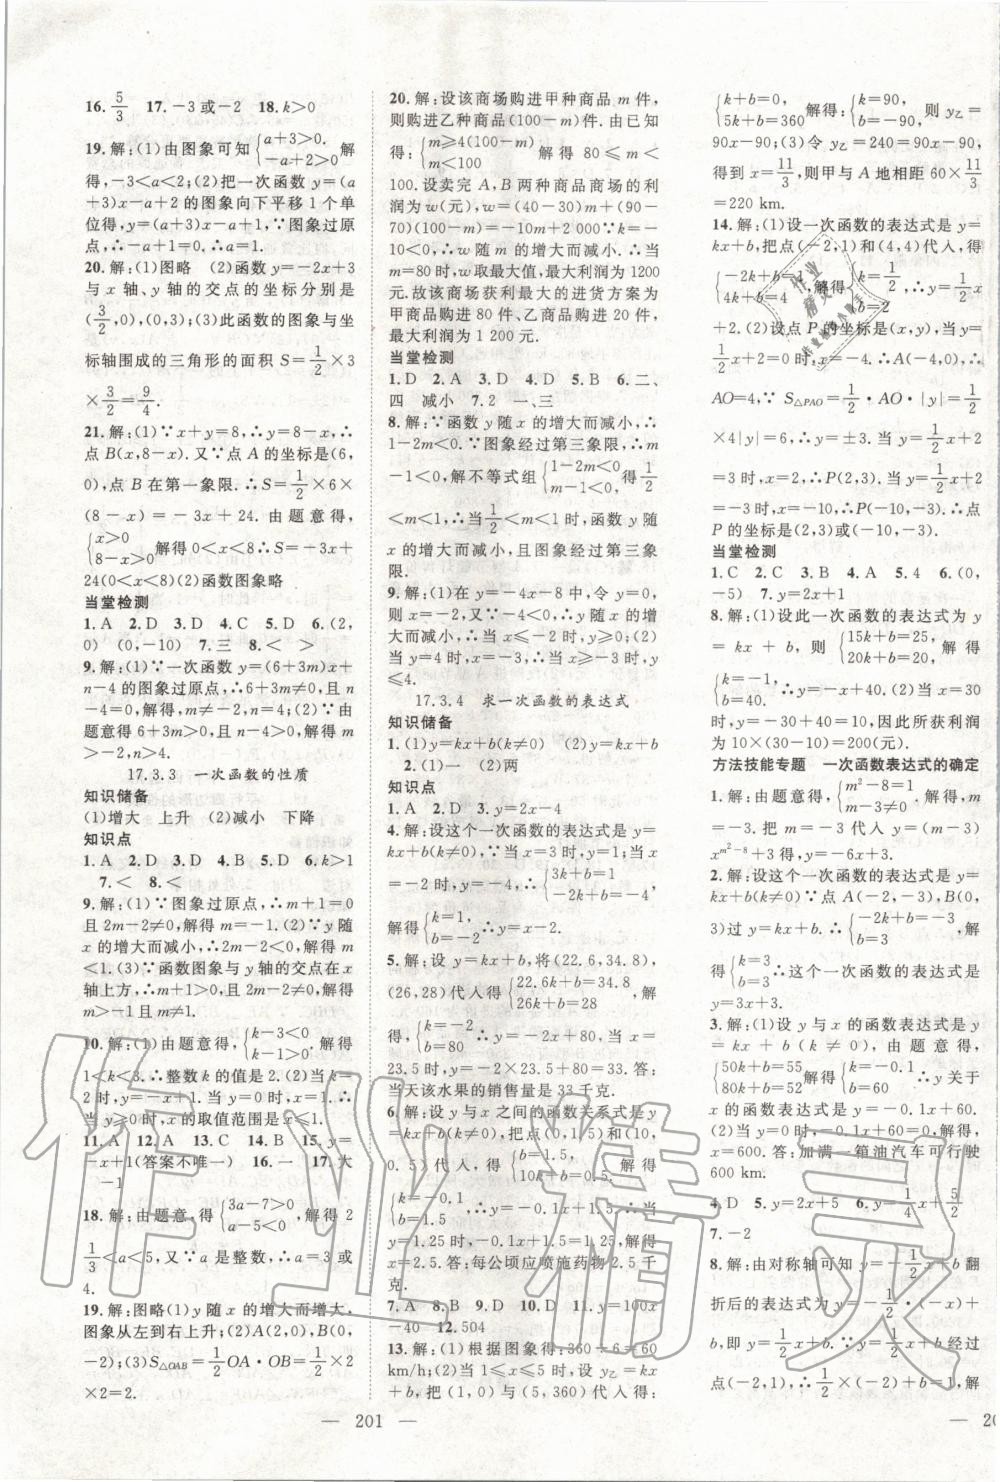 16. 5/3  17. －3或－2  18. k＞0
19. 解:(1)由图象可知{a+3＞0. －a+2＞0 解
得,－3＜a＜2;(2)把一次函数 y=(a
+3)x－a+2 的图象向下平移 1 个单
位得,y=(a+3)x－a+1,∵图象过原
点,∴－a+1=0.∴a=1.
20. 解:(1)图略  (2)函数 y=－2x+3
与 x 轴、y 轴的交点的坐标分别是
(3/2,0),(0,3);(3)此函数的图象与坐
标轴围成的三角形的面积 S=1/2×3
×3/2=9/4.
21. 解:(1)∵x+y=8,∴y=8－x,∴
点 B(x,8－x). 又∵点 A 的坐标是(6,
0),点 B 在第一象限.∴S=1/2×6×
(8－x)=－3x+24. 由题意得,
{x＞0 8－x＞0 解得 0＜x＜8∴S=－3x+
24(0＜x＜8)(2)函数图象略
当堂检测
1. A  2. D  3. D  4. C  5. D  6. (2,
0)  (0,－10)  7. 三  8. ＜  ＞
9. 解:(1)∵一次函数 y=(6+3m)x+
n－4 的图象过原点,∴6+3m≠0,且 n
－4=0,解得,m≠－2,n=4;(2)∵由
题意得 6+3m＞0,n－4＞0,解得 m
＞－2,n＞4.
17.3.3  一次函数的性质
知识储备
(1)增大  上升  (2)减小  下降
知识点
1. A  2. D  3. D  4. B  5. D  6. k＞1
7. ＜  8. ＜
9. 解:(1)∵图象过原点,∴m+1=0
且 2m－2≠0,解得 m=－1. (2)∵y 随
x 的增大而减小,∴2m－2＜0,解得 m
＜1. (3)∵函数图象与 y 轴的交点在 x
轴上方,∴m+1＞0且 2m－2≠0,解得
m＞－1 且 m≠1.
10. 解:(1)由题意得,{k－3＜0 k－1＞0. 解得
1＜k＜3.∴整数 k 的值是 2. (2)当
时,y=－x+1. 当 y=0 时,x=1,
当 y≥0 时,x 的取值范围是 x≤1.
11. A  12. A  13. C  14. B  15. y=
－x+1(答案不唯一)  16. 一  17. 大
－1
18. 解:由题意,得{3a－7＞0 a－5＜0. 解得 2
1/3＜a＜5,又∵a 是整数,∴a=3 或
4.
19. 解:图略(1)y 随 x 的增大而增大,
图象从左到右上升;(2)A(2,0),B(0,
－2);(3)S△OAB=1/2OA·OB=1/2×2
×2=2.
20. 解:设该商场购进甲种商品 m 件,
则购进乙种商品(100－m)件. 由已知
得:{m≥4(100－m) m＜100 解得 80≤m＜
100. 设卖完 A,B 两种商品商场的利
润为 w(元),w=(40－30)m+(90－
70)(100－m)=－10m+2 000∵k=
－10＜0,∴w 随 m 的增大而减小. ∴
当 m=80 时,w 取最大值,最大利润为 1200
元. 故该商场获利最大的进货方案为
甲商品购进 80 件、乙商品购进 20 件,
最大利润为 1 200 元.
当堂检测
1. D  2. A  3. D  4. D  5. B  6. 二、
四  减小  7. 2  一、三
8. 解:∵函数 y 随 x 的增大而减小,∴
1－2m＜0. ∵图象经过第三象限,∴m
－1＜0,解不等式组{1－2m＜0 m－1＜0 得1/2
＜m＜1,∴当1/2＜m＜1 时,函数 y 随
x 的增大而减小,且图象经过第三象
限.
9. 解:(1)在 y=－4x－8 中,令 y=0,
则 x=－2,又∵－4＜0,∴y 随 x 的增
大而减小,∴当 x≤－2 时,y≥0;(2)
当 y≤4 时,－4x－8≤4,∴x≥－3.
4.
17.3.4  求一次函数的表达式
知识储备
1. (1)y=kx+b(k≠0)  (2)y=kx+b
2. (1)一  (2)两
知识点
1. A  2. D  3. y=2x－4
4. 解:设这个一次函数的表达式是 y=
kx+b(k≠0),∵当 x=3 时,y=1;当 x
=－2 时,y=－4,∴{3k+b=1 －2k+b=－4.
解得{k=1, b=－2 ∴y=x－2.
5. 解:设 y=kx+b,将(22.6,34.8),
(26,28)代入得{22.6k+b=34.8 26k+b=28,解
得,{k=－2 b=80 ∴y=－2x+80,当 x=
23.5 时,y=－2×23.5+80=33. 答:
当天该水果的销售量是 33 千克.
6. 解:设 y 与 x 之间的函数关系式是
y=kx+b(k≠0),把点(0,1.5)和(10,
0.5)代入,得{b=1.5, 10k+b=0.5. 解得
{k=－0.1 b=1.5 ∴y=－0.1x+1.5,当
时,y=1.25,－0.1x+1.5=1.25,解得
x=2.5. 答:每公顷应喷施药物 2.5 千
克.
7. A  8. B  9. D  10. D  11. y=100x
－40  12. 504
13. 解:(1)根据图象得:360÷6=60
km/h;(2)当 1≤x≤5 时,设 y乙=
kx+b,把(1,0)与(5,360)代入得:
{k+b=0, 5k+b=360 解得:{k=90, b=－90. 则 y乙=
90x－90;(3)令 y乙=240,90x－90,
得到 x=11/3,则甲与 A 地相距 60×11/3
=220 km.
14. 解:(1)设一次函数的表达式是 y=
kx+b,把点(－2,1)和(4,4)代入,得
{－2k+b=1 4k+b=4, 解得 b=2 ∴y=1/2x
+2. (2)设点 P 的坐标是(x,y),当
1/2x+2=0 时,x=－4.∴A(－4,0),
AO=4,∵S△PAO=1/2·AO·|y|=1/2
×4|y|=6,∴y=±3. 当 y=1/2x+2
=3 时,x=2,∴P(2,3). 当 y=1/2x+2
=－3 时,x=－10,∴P(－10,－3).∴点
P 的坐标是(2,3)或(－10,－3).
当堂检测
1. C  2. C  3. B  4. A  5. 4  6. (0,
－5)  7. y=2x+1
8. 解:(1)设此一次函数的表达式为 y
=kx+b,则{15k+b=25, 20k+b=20. 解得
{k=－1, b=40. ∴y=－x+40. (2)当 x=30
时,y=－30+40=10,因此所获利润
为 10×(30－10)=200(元).
方法技能专题  一次函数表达式的确定
1. 解:由题意得{m²－8=1 m－3≠0. 解得,m=
－3. 把 m=－3 代入 y=(m－3)
x^(m²－8)+3 得,y=－6x+3.
2. 解:设这个一次函数的表达式为 y=
kx+b(k≠0). ∵点 A(－2,－3),B(0,
3)过 y=kx+b.∴{－2k+b=－3 b=3 ,解
得{k=3 b=3 ∴这个一次函数的表达式是
y=3x+3.
3. 解:(1)设 y 与 x 的函数表达式是
y=kx+b(k≠0),由题意得,
{50k+b=55 80k+b=52 解得{k=－0.1 b=60 .∴y 关于
x 的函数表达式是 y=－0.1x+60.
(2)当 y=0 时,－0.1x+60=0,解得,
x=600. 答:加满一箱油汽车可行驶
600 km.
4. D  5. y=2x+5  6. y=－1/4x+5/2
7. －2
8. 解:由对称轴可知 y=－1/2x+b 翻
折后的表达式为 y=1/2x
+b,即 y=1/2x+b.∵y=1/2x+b 经过
点(－2,1),∴1/2×(－2)+b=1,解
— 201 —
— 20
作业精灵
作业精灵